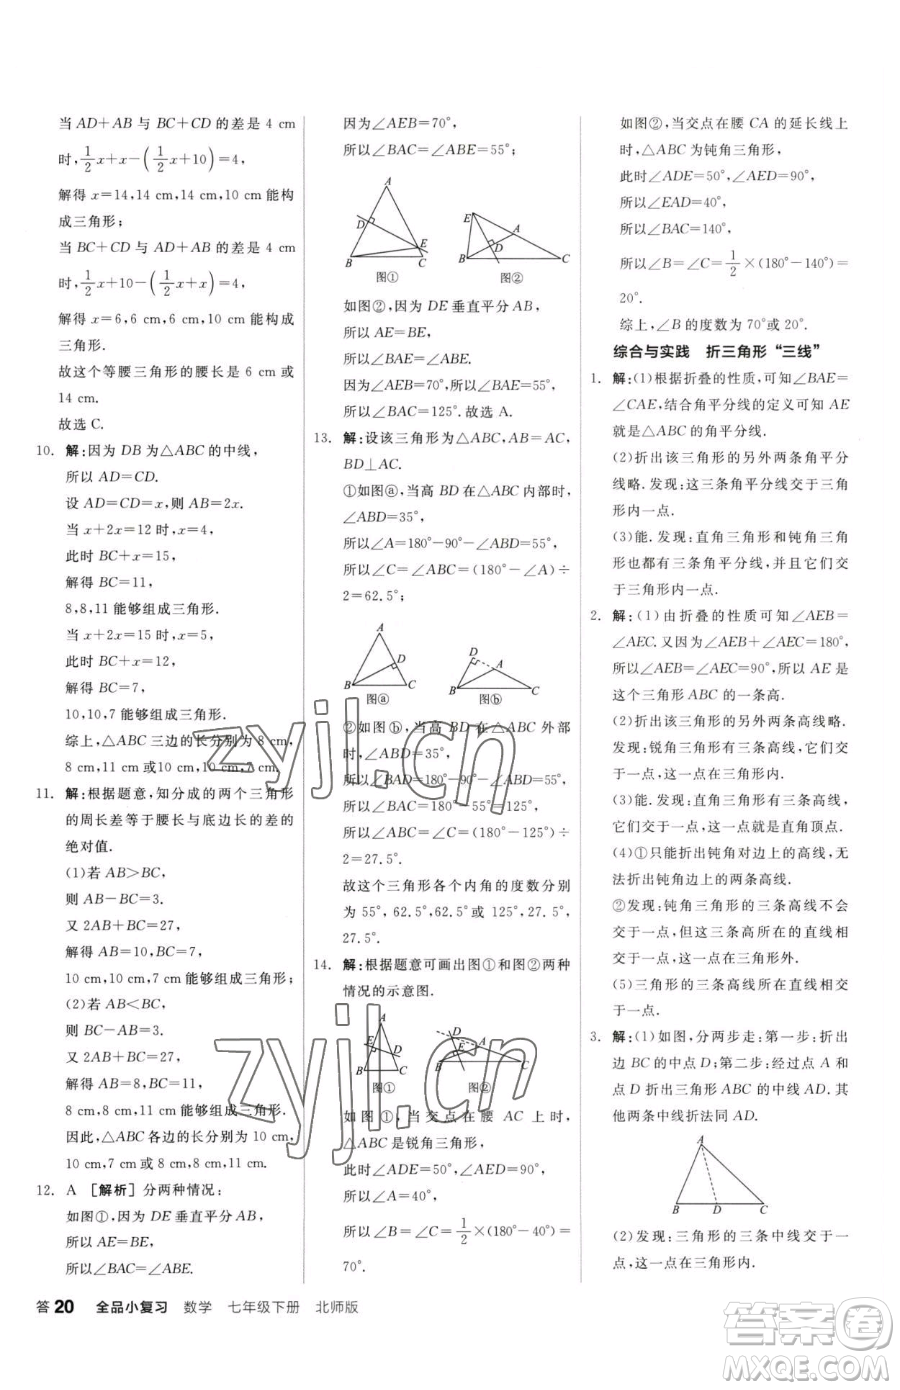 当 AD+AB 与 BC+CD 的差是 4 cm
时,1/2x+x-(1/2x+10)=4,
解得 x=14,14 cm,14 cm,10 cm 能构
成三角形;
当 BC+CD 与 AD+AB 的差是 4 cm
时,1/2x+10-(1/2x+x)=4,
解得 x=6,6 cm,6 cm,10 cm 能构成
三角形.
故这个等腰三角形的腰长是 6 cm 或
14 cm.
故选 C.
10. 解:因为 DB 为△ABC 的中线,
所以 AD=CD.
设 AD=CD=x,则 AB=2x.
当 x+2x=12 时,x=4,
此时 BC+x=15,
解得 BC=11,
8,8,11 能够组成三角形.
当 x+2x=15 时,x=5,
此时 BC+x=12,
解得 BC=7,
10,10,7 能够组成三角形.
综上,△ABC 三边的长分别为 8 cm,
8 cm,11 cm或10 cm,10 cm,7 cm.
11. 解:根据题意,知分成的两个三角形
的周长差等于腰长与底边长的差的
绝对值.
(1)若 AB>BC,
则 AB-BC=3.
又 2AB+BC=27,
解得 AB=10,BC=7,
10 cm,10 cm,7 cm 能够组成三角形;
(2)若 AB<BC,
则 BC-AB=3.
又 2AB+BC=27,
解得 AB=8,BC=11,
8 cm,8 cm,11 cm 能够组成三角形.
因此,△ABC 各边的长分别为 10 cm,
10 cm,7 cm 或 8 cm,8 cm,11 cm.
12. A [解析] 分两种情况:
如图①,因为 DE 垂直平分 AB,
所以 AE=BE,
所以∠BAC=∠ABE,
因为∠AEB=70°,
所以∠BAC=∠ABE=55°;
A
D
E
B
C
图①
E
A
D
B
C
图②
如图②,因为 DE 垂直平分 AB,
所以 AE=BE,
所以∠BAE=∠ABE,
因为∠AEB=70°,所以∠BAE=55°,
所以∠BAC=125°.故选 A.
13. 解:设该三角形为△ABC,AB=AC,
BD⊥AC.
①如图ⓐ,当高 BD 在△ABC 内部时,
∠ABD=35°,
所以∠A=180°-90°-∠ABD=55°,
所以∠C=∠ABC=(180°-∠A)÷
2=62.5°;
A
D
B
C
图ⓐ
D
A
B
C
图ⓑ
②如图ⓑ,当高 BD 在△ABC 外部
时,∠ABD=35°,
所以∠BAD=180°-90°-∠ABD=55°,
所以∠BAC=180°-55°=125°,
所以∠ABC=∠C=(180°-125°)÷
2=27.5°.
故这个三角形各个内角的度数分别
为 55°,62.5°,62.5°或125°,27.5°,
27.5°.
14. 解:根据题意可画出图①和图②两种
情况的示意图.
A
E
D
B
C
图①
D
E
A
B
C
图②
如图①,当交点在腰 AC 上时,
△ABC是锐角三角形,
此时∠ADE=50°,∠AED=90°,
所以∠A=40°,
所以∠B=∠C=1/2×(180°-40°)=
70°.
如图②,当交点在腰 CA 的延长线上
时,△ABC 为钝角三角形,
此时∠ADE=50°,∠AED=90°,
所以∠EAD=40°,
所以∠BAC=140°,
所以∠B=∠C=1/2×(180°-140°)=
20°.
综上,∠B 的度数为 70°或 20°.
综合与实践 折三角形“三线”
1. 解:(1)根据折叠的性质,可知∠BAE=
∠CAE,结合角平分线的定义可知 AE
就是∠BAC 的平分线.
(2)折出该三角形的另外两条角平分
线略.发现:这三条角平分线交于三角
形内一点.
(3)能.发现:直角三角形和钝角三角
形也都有三条角平分线,并且它们交
于三角形内一点.
2. 解:(1)由折叠的性质可知∠AEB=
∠AEC.又因为∠AEB+∠AEC=180°,
所以∠AEB=∠AEC=90°,所以 AE 是
这个三角形 ABC 的一条高.
(2)折出该三角形的另外两条高线略.
发现:锐角三角形的三条高线交于一
点,且在三角形内.
(3)能.发现:直角三角形有三条高线,
它们交于一点,这点就是直角顶点.
(4)①只能折出钝角对边上的高线,无
法折到钝角边上的两条高线.
②发现:钝角三角形的三条高线不会
交于一点,但三条高线的延长线会交
于一点,且在三角形外.
(5)三角形的三条高所在直线相交于
一点.
3. 解:(1)如图,分两步走:第一步:折出
边 BC 的中点 D;第二步:经过点 A 和
点 D 折出三角形 ABC 的中线 AD.其
他两条中线折法同 AD.
A
B
D
C
(2)发现:三角形的三条中线交于一
点,且在三角形内.
答 20 全品小复习 数学 七年级下册 北师版
zyjl.cn
zyjl.cn
答案圈
MXQE.COM